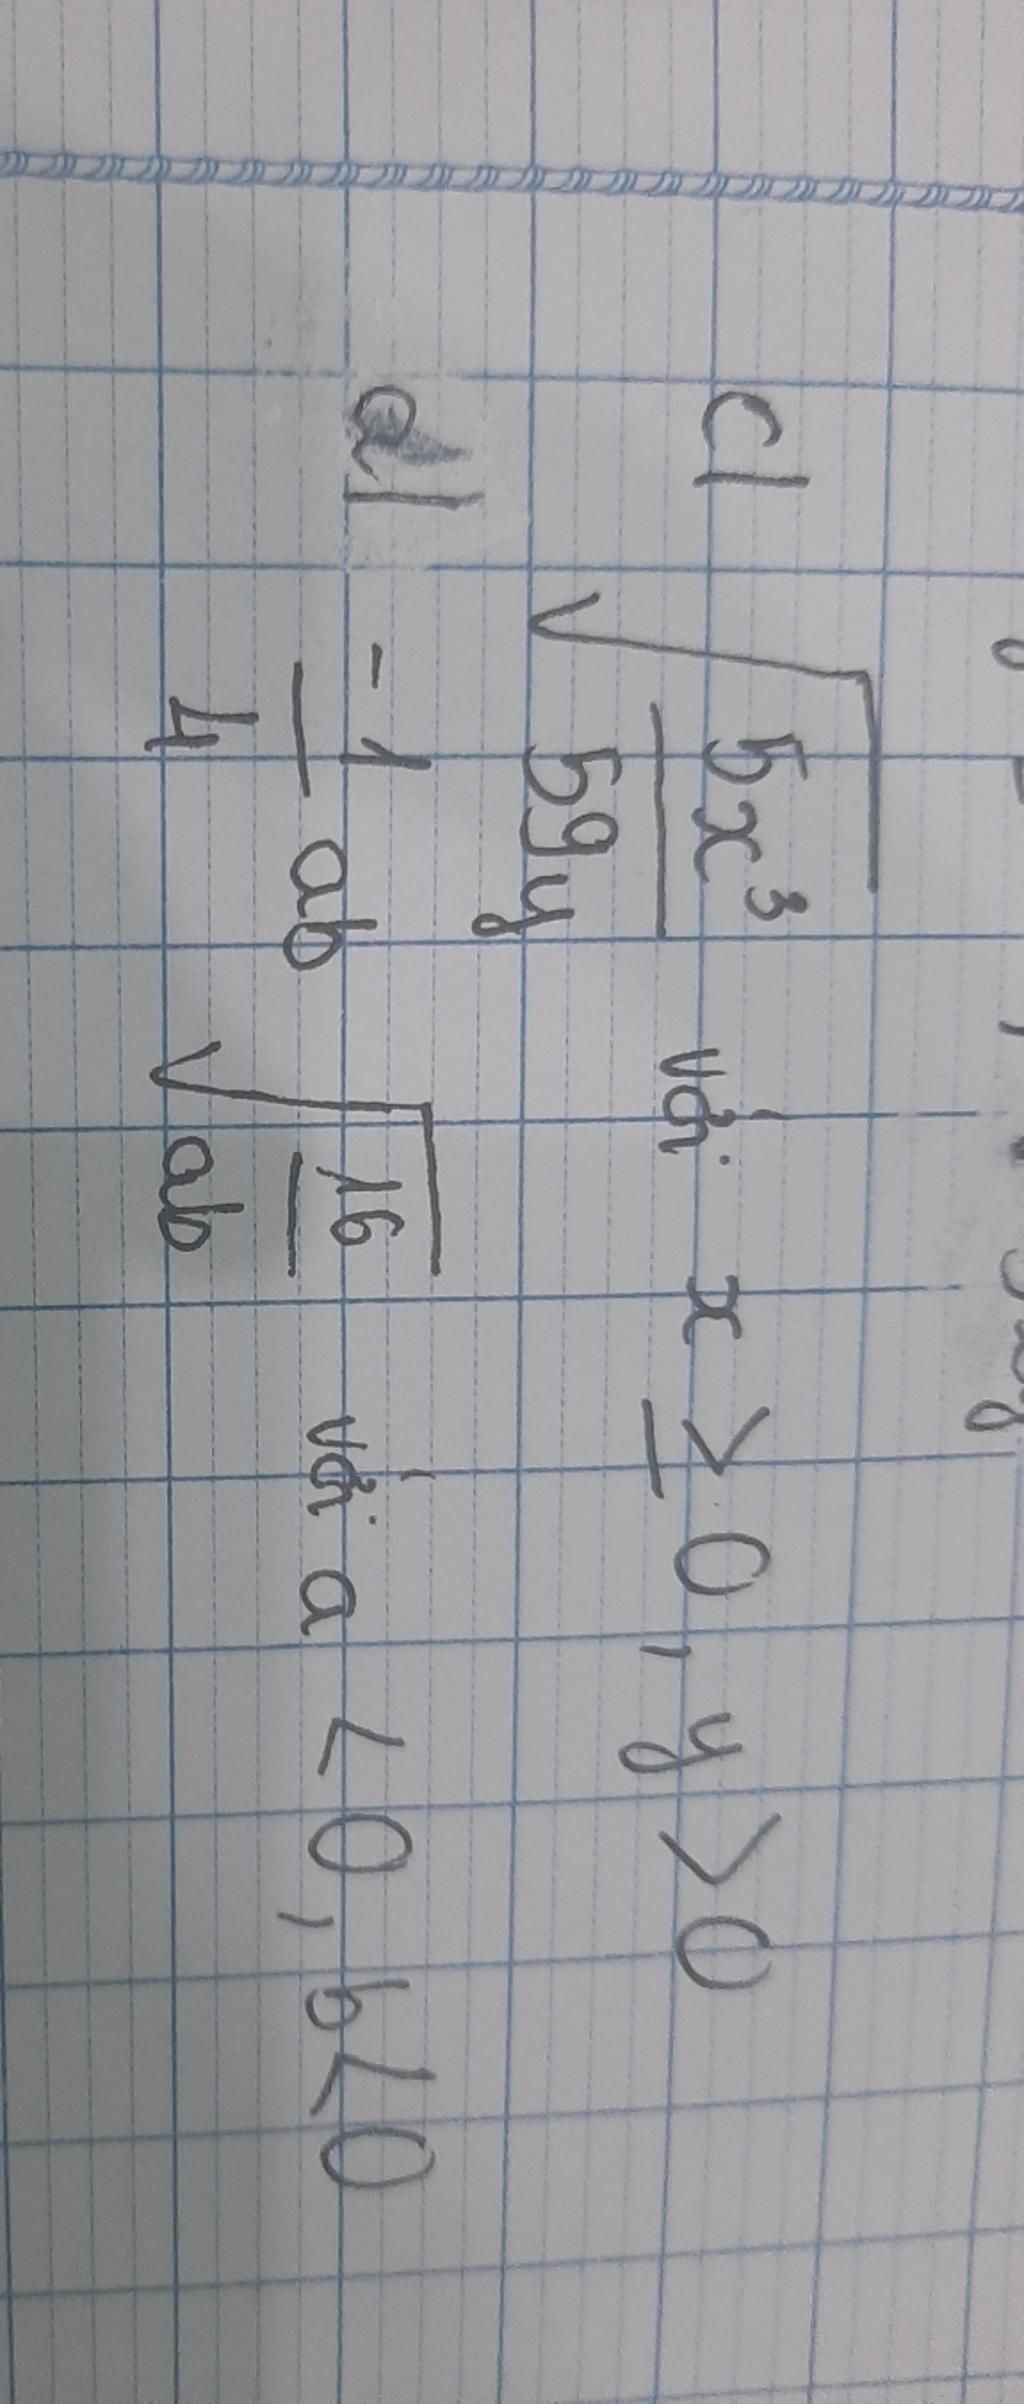 c) √(5x³/59y) với x ≥ 0, y > 0
d) -1/4 ab √(16/ab) với a < 0, b < 0